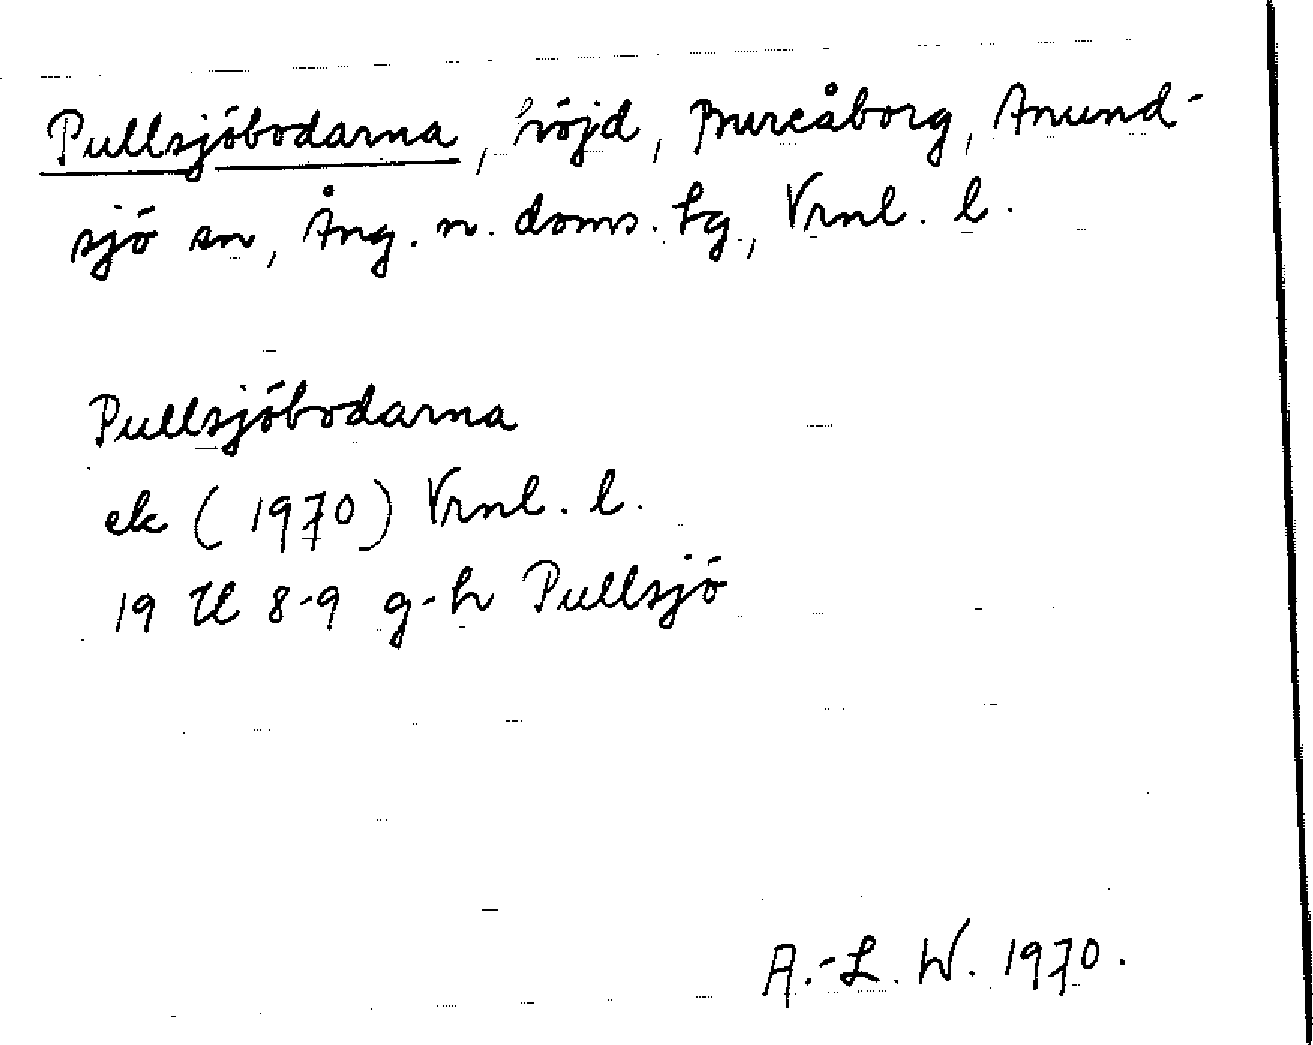 Pullsjöbodarna, höjd, Bureåborg, Anund-
sjö sn, Ång. n. doms. tg., Vrnl. l.
Pullsjöbodarna
ek (1970) Vrnl. l.
19 H 8-9 g-h Pullsjö
A.-L. W. 1970.